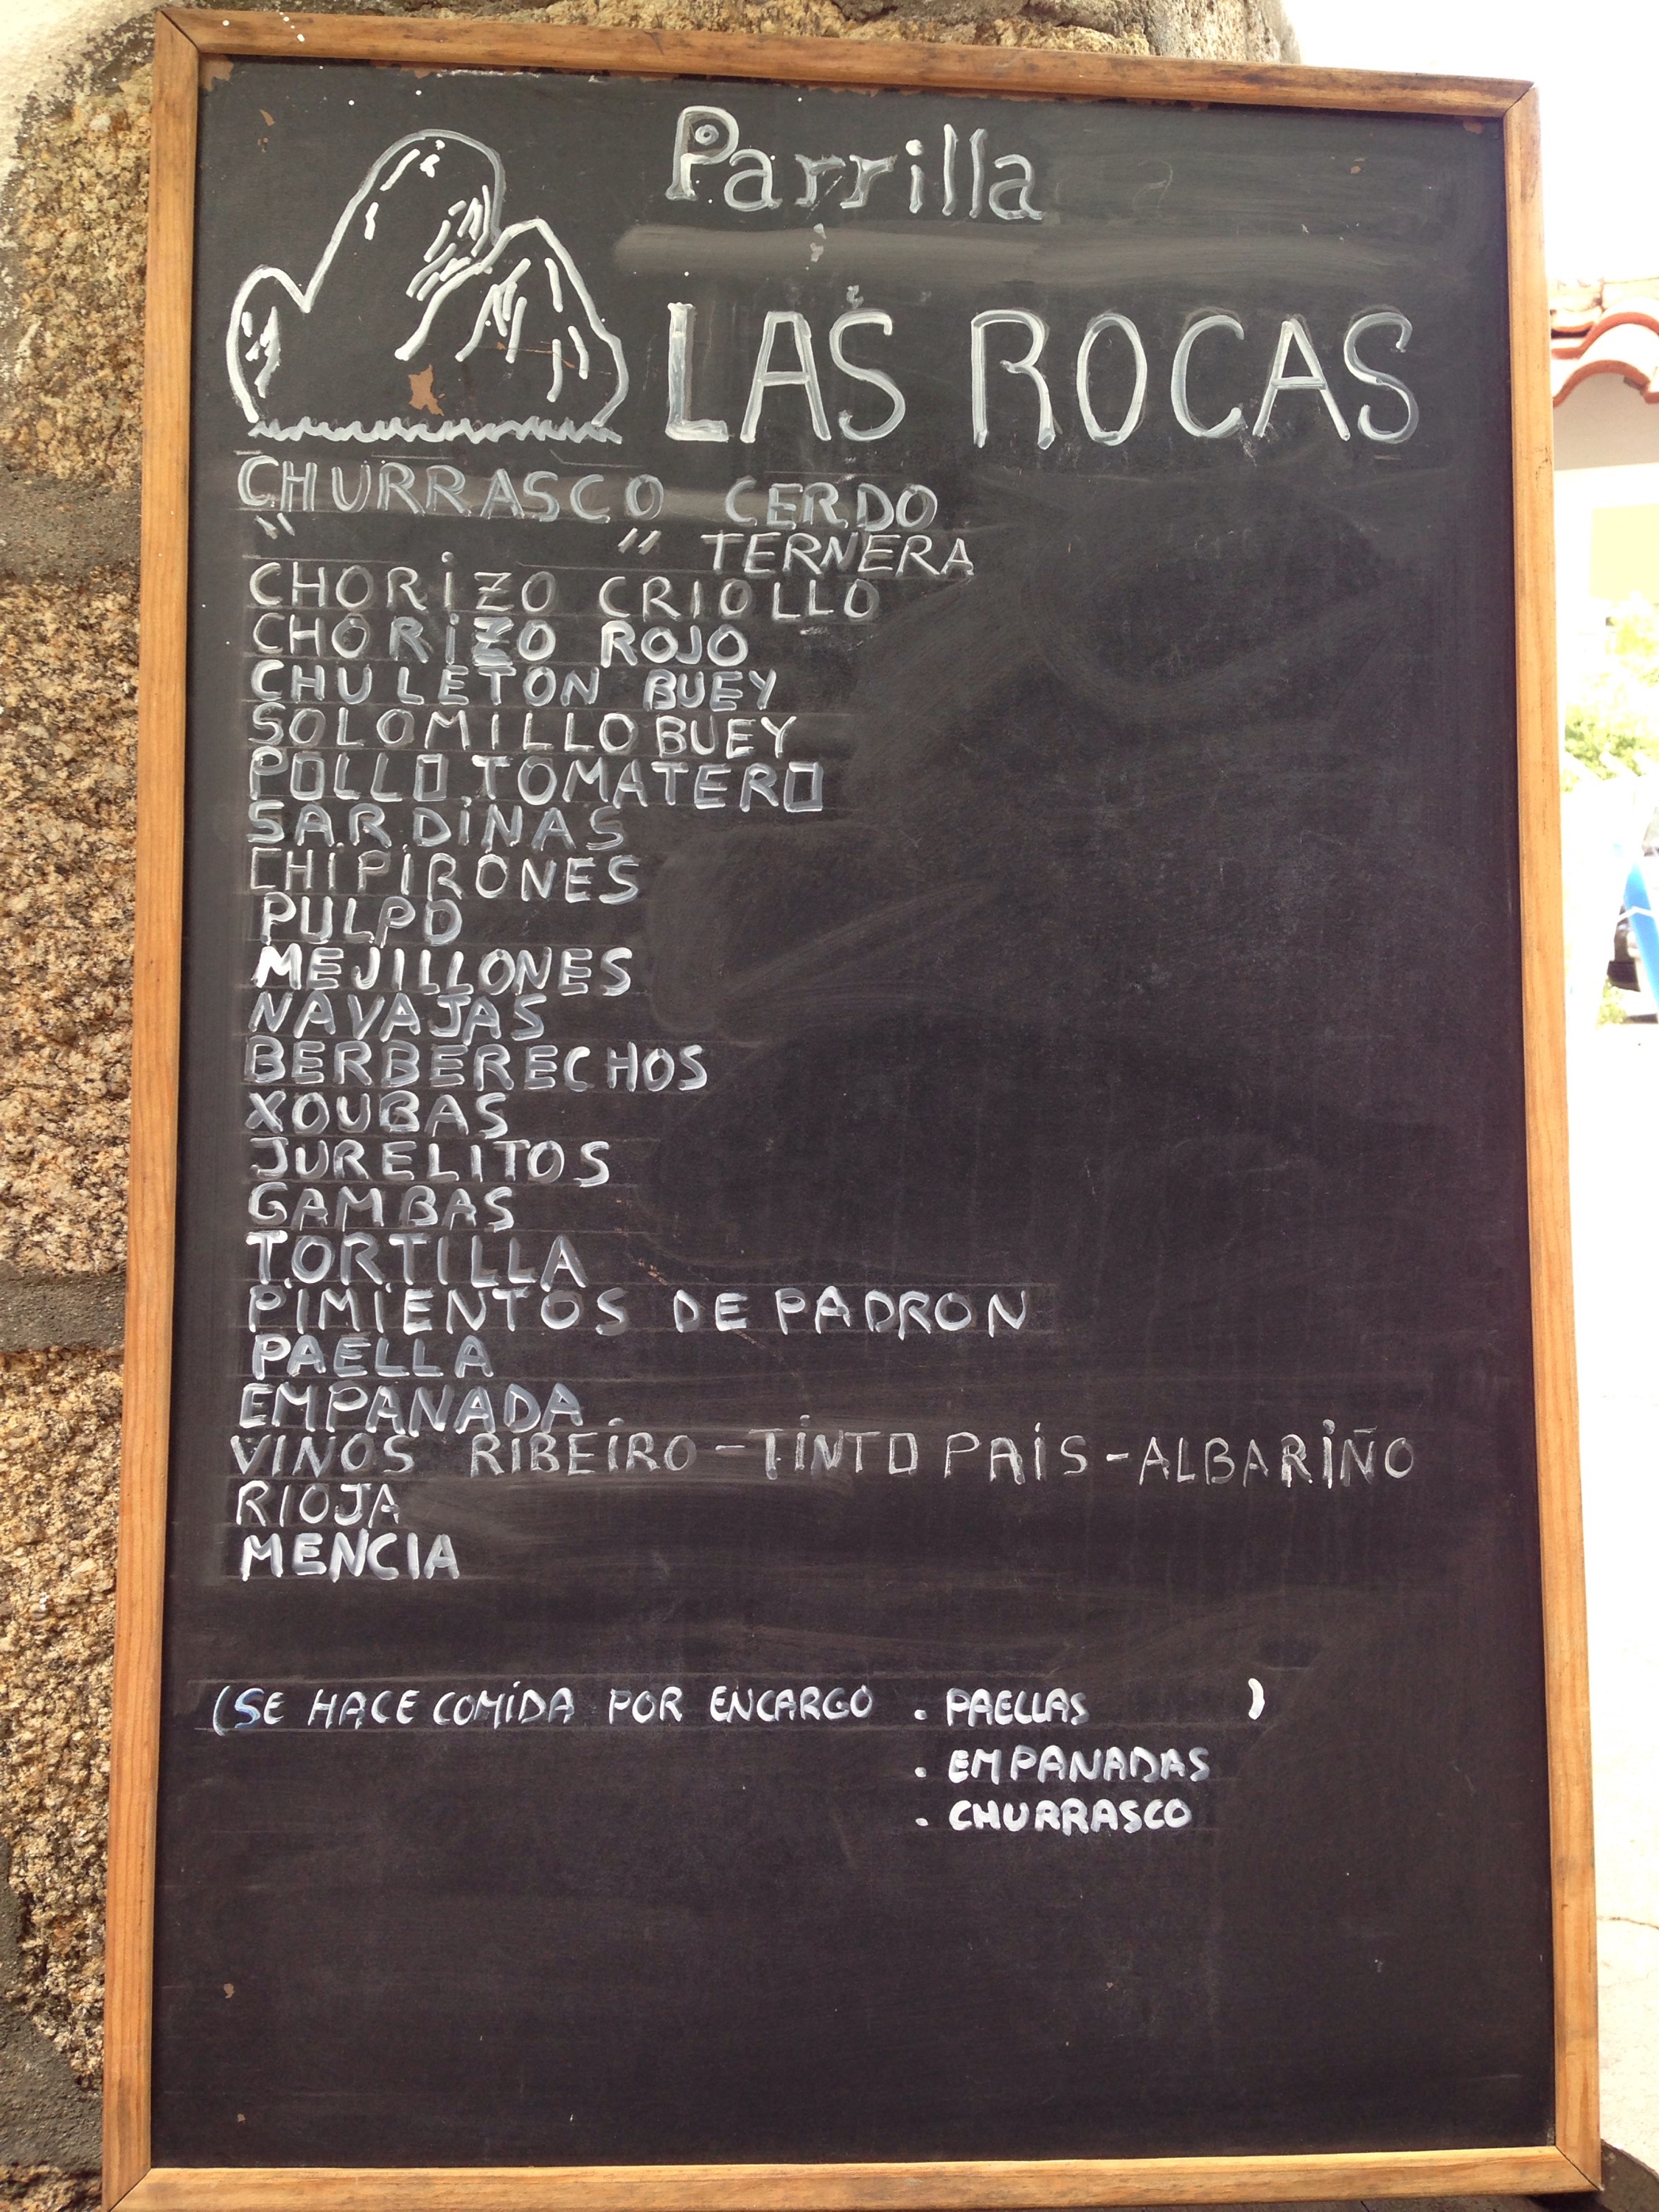 Parrilla
LAS ROCAS
CHURRASCO CERDO
" " TERNERA
CHORIZO CRIOLLO
CHORIZO ROJO
CHULETON BUEY
SOLOMILLO BUEY
POLLO TOMATERO
SARDINAS
CHIPIRONES
PULPO
MEJILLONES
NAVAJAS
BERBERECHOS
XOUBAS
JURELITOS
GAMBAS
TORTILLA
PIMIENTOS DE PADRON
PAELLA
EMPANADA
VINOS RIBEIRO - TINTO PAIS - ALBARIÑO
RIOJA
MENCIA
(SE HACE COMIDA POR ENCARGO . PAELLAS )
. EMPANADAS
. CHURRASCO